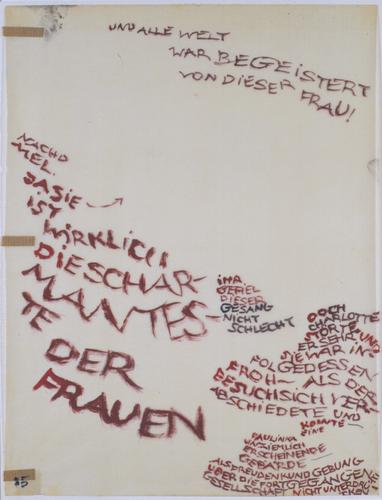 UND ALLE WELT
WAR BEGEISTERT
VON DIESER FRAU!
NACH D
MEL.
JA SIE
IST
WIRKLICH
DIE SCHAR-
MANTES-
TE
DER
FRAUEN
IHR
GEFIEL
DIESER
GESANG
NICHT
SCHLECHT
DOCH
CHARLOTTE
STÖRTE UND
ER SEHR
SIE WAR IN-
FOLGEDESSEN
FROH – ALS DER
BESUCH SICH VER-
ABSCHIEDETE UND
KONNTE
EINE
PAULINKA
UNZIEMLICH
ERSCHEINENDE
GEBÄRDE
ALS FREUDENKUNDGEBUNG
ÜBER DIE FORTGEGANGENE
GESELLSCHAFT NICHT UNTERDRÜ-
CKEN